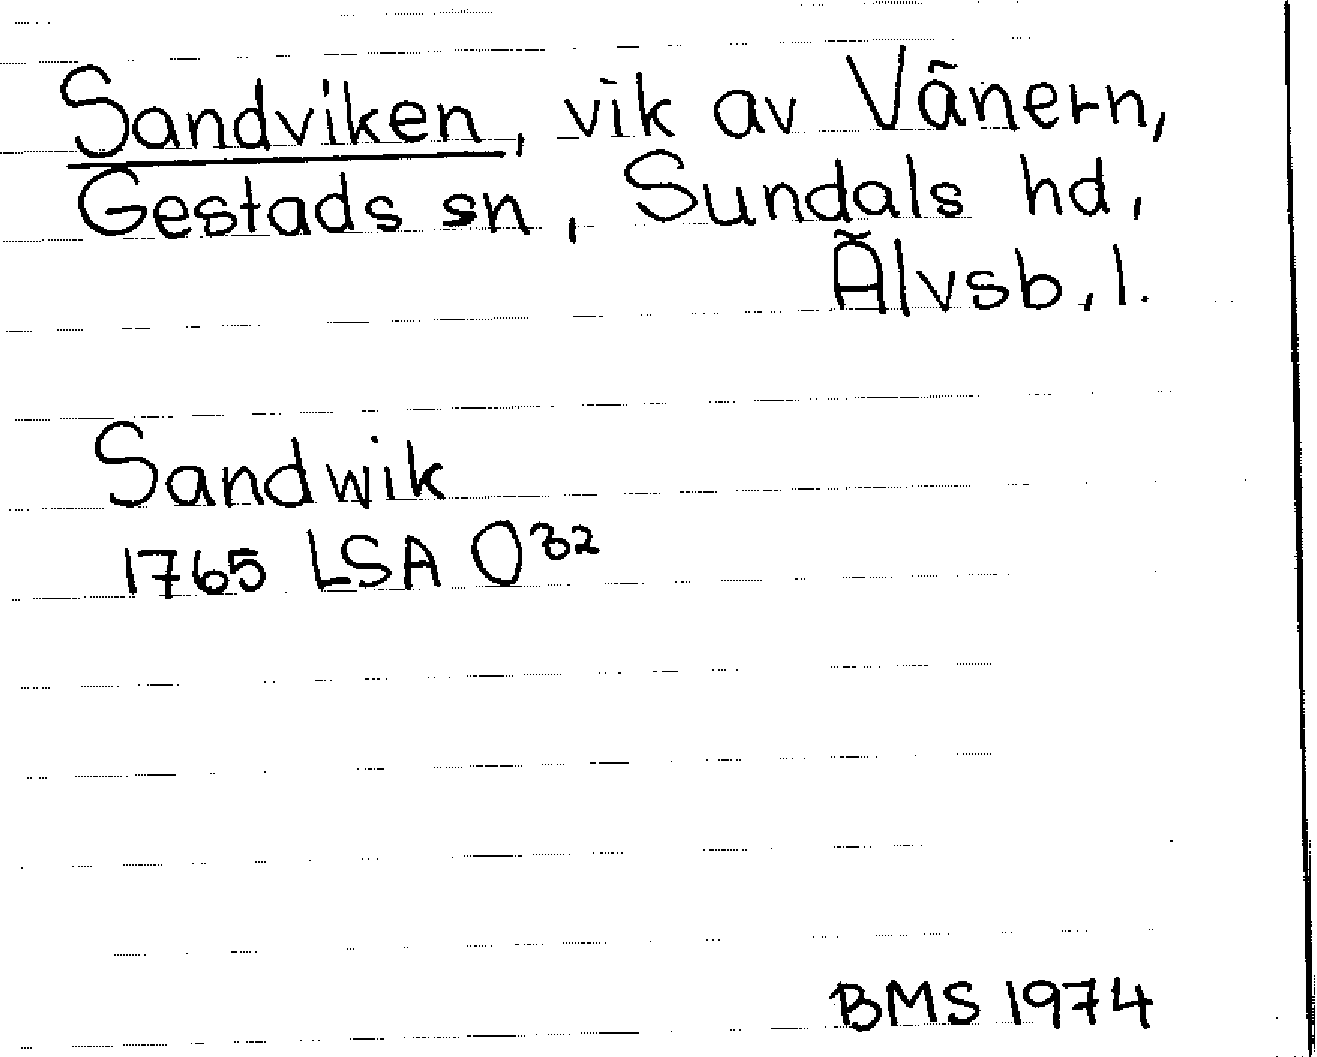 Sandviken, vik av Vänern,
Gestads sn, Sundals hd,
Älvsb. l.
Sandwik
1765 LSA O32
BMS 1974